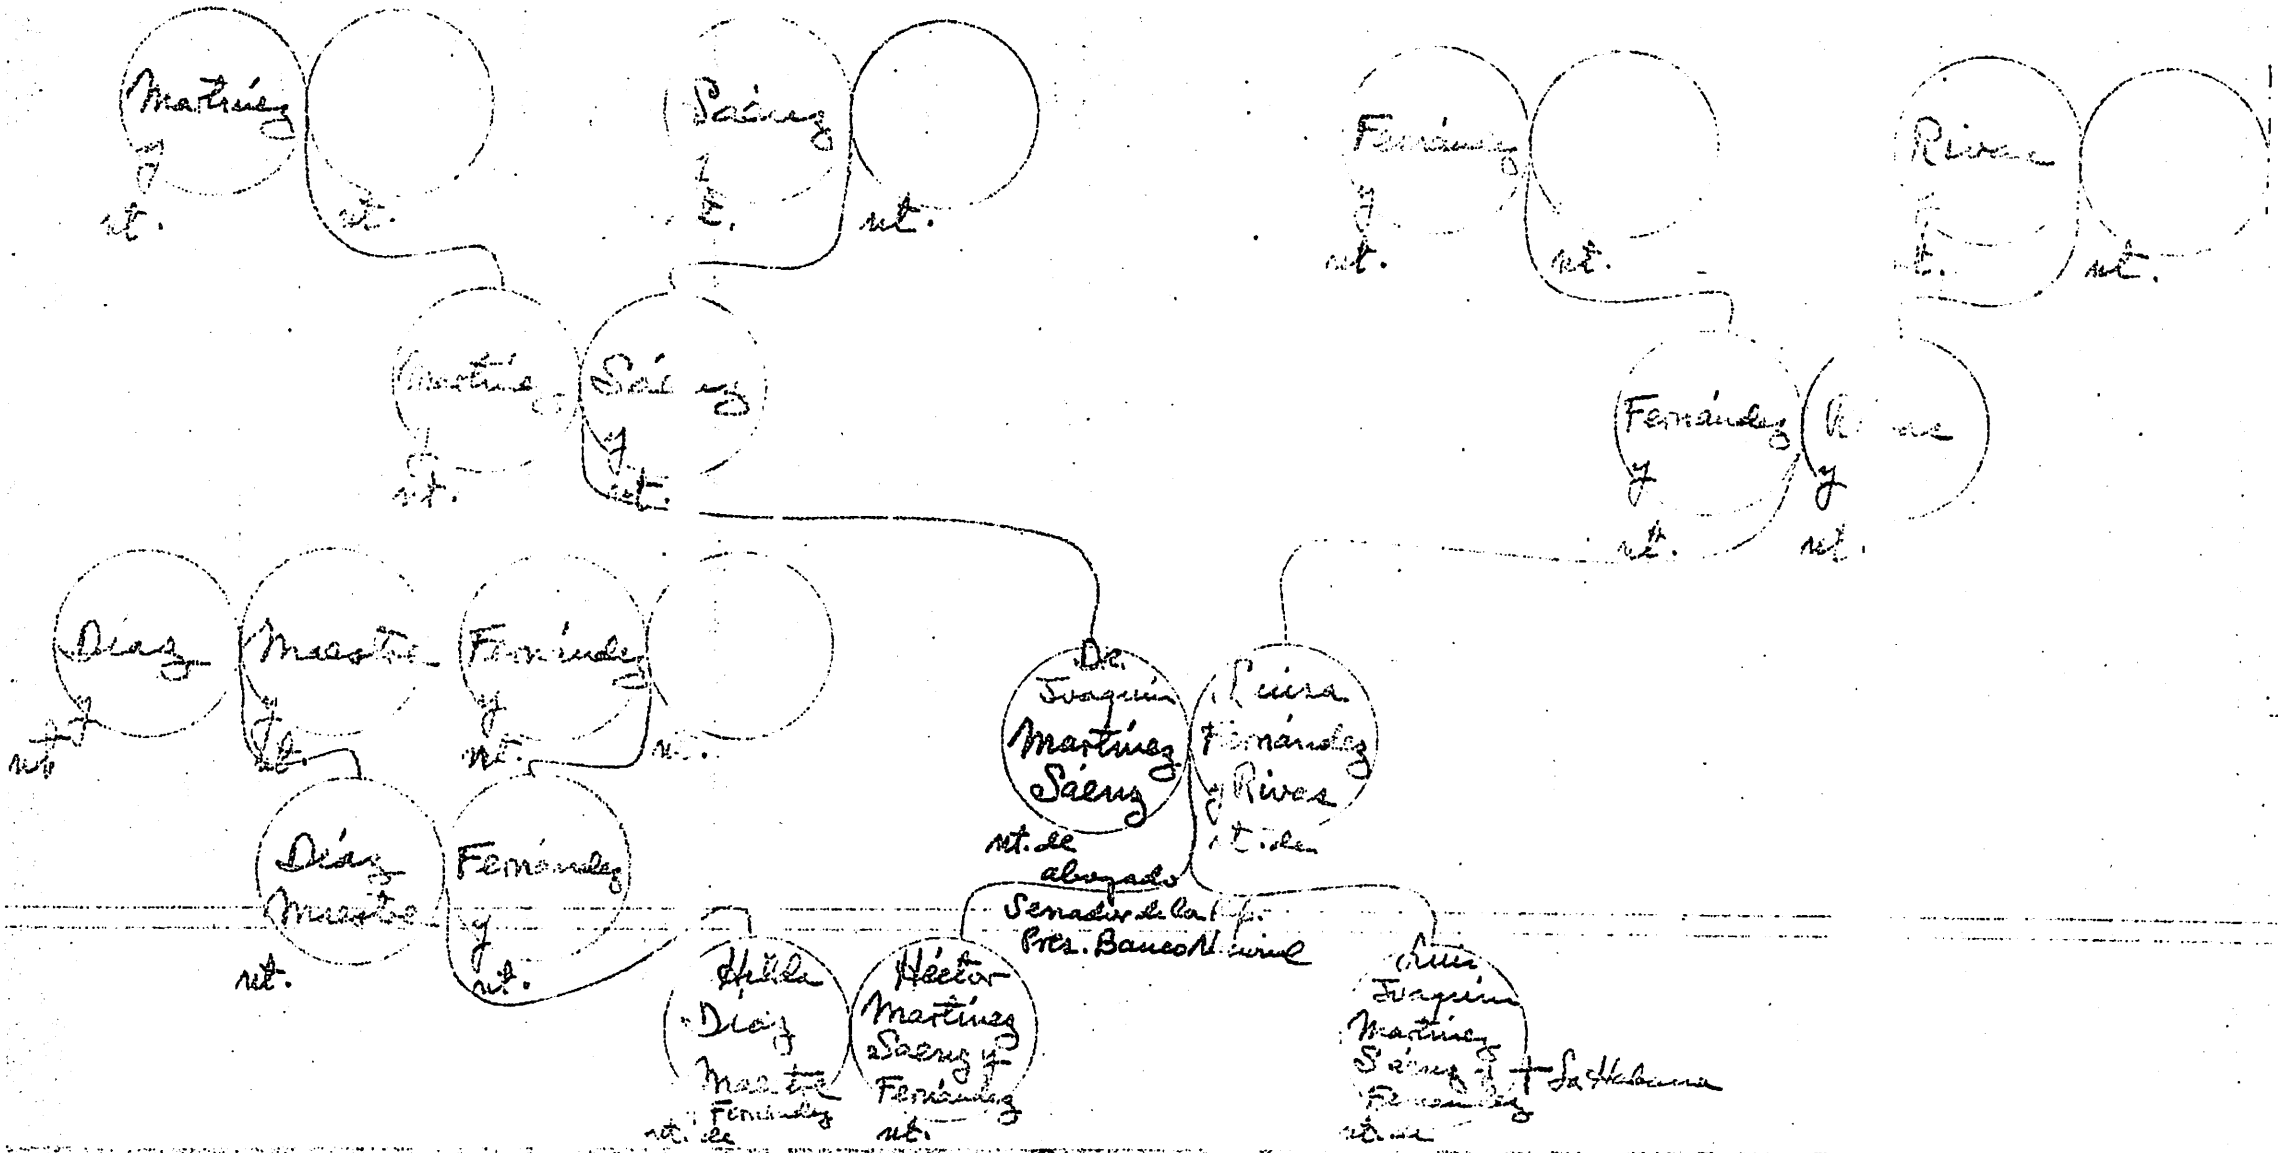 Martínez
y
nt.
nt.
Sáenz
y
t.
nt.
Fernández
y
nt.
nt.
Rivas
y
t.
nt.
Martínez
y
nt.
Sáenz
y
nt.
Fernández
y
nt.
Rivas
y
nt.
Díaz
y
nt.
Maestre
y
nt.
Fernández
y
nt.
n.
Díaz
Maestre
nt.
Fernández
y
nt.
Dr.
Joaquín
Martínez
Sáenz
nt. de
abogado
Senador de la Rep.
Pres. Banco
Luisa
Fernández
y Rivas
nt. de
Hilda
Díaz
Maestre
Fernández
nt. de
Héctor
Martínez
Sáenz y
Fernández
nt.
Luis
Joaquín
Martínez
Sáenz y
Fernández
nt. de
+ La Habana